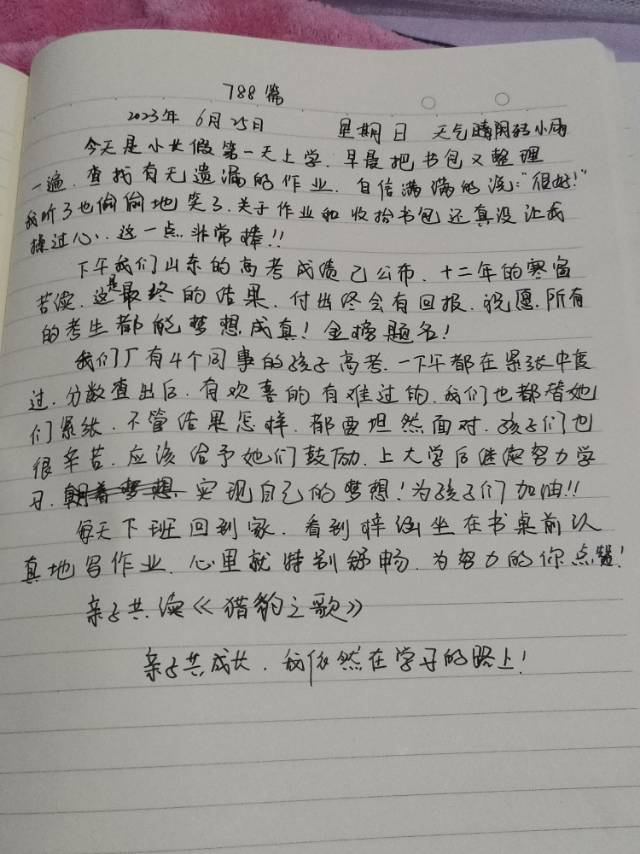 788篇
2023年 6月25日 星期日 天气晴阴转小雨
今天是小长假第一天上学.早晨把书包又整理
一遍.查找有无遗漏的作业.自信满满的说:"很好!"
我听了也偷偷地笑了.关于作业和收拾书包还真没让我
操过心.这一点非常棒!!
下午我们山东的高考成绩已公布.十二年的寒窗
苦读.这是最终的结果.付出终会有回报.祝愿.所有
的考生都能梦想成真!金榜题名!
我们厂有4个同事的孩子高考.一下午都在紧张中度
过.分数查出后.有欢喜的有难过的.我们也都替她
们紧张.不管结果怎样.都要坦然面对.孩子们也
很辛苦.应该给予她们鼓励.上大学后继续努力学
习.朝着梦想.实现自己的梦想!为孩子们加油!!
每天下班回到家.看到梓涵坐在书桌前认
真地写作业.心里就特别舒畅.为努力的你点赞!
亲子共读《猎豹之歌》
亲子共成长.我依然在学习的路上!